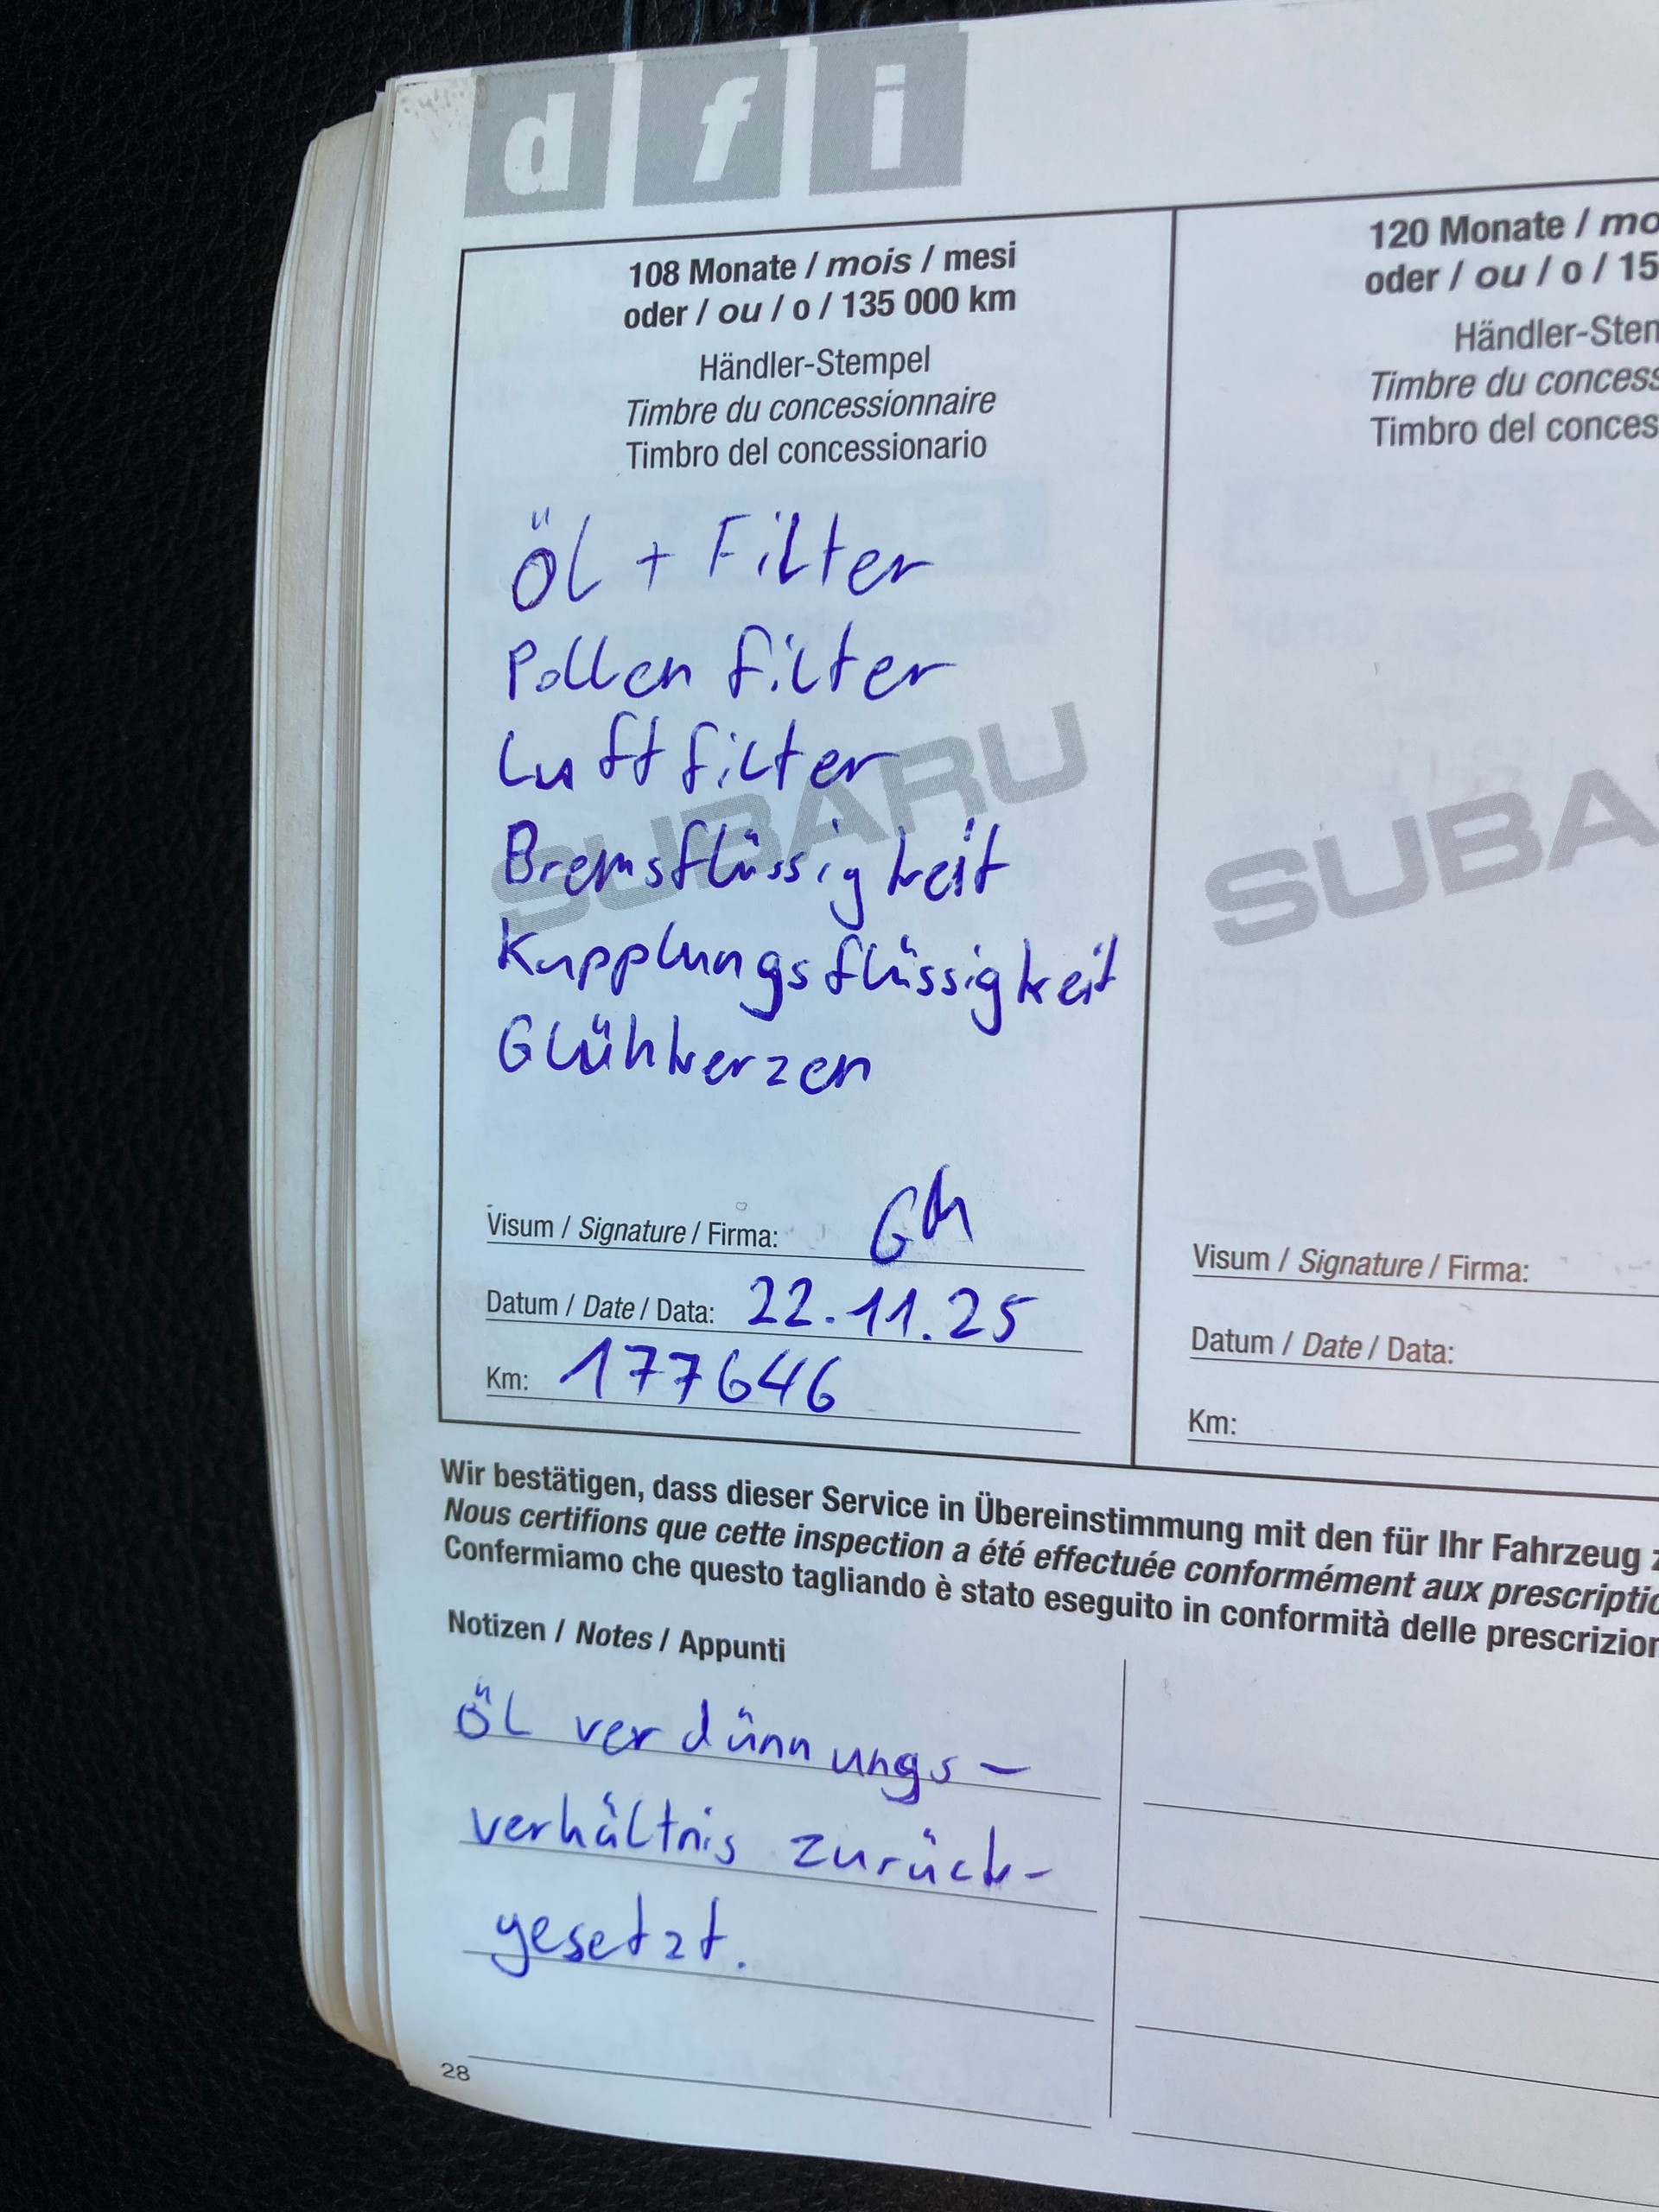 d f i
108 Monate / mois / mesi
oder / ou / o / 135 000 km
Händler-Stempel
Timbre du concessionnaire
Timbro del concessionario
SUBARU
Öl + Filter
Pollenfilter
Luftfilter
Bremsflüssigkeit
Kupplungsflüssigkeit
Glühkerzen
Visum / Signature / Firma: GM
Datum / Date / Data: 22.11.25
Km: 177646
120 Monate / mo
oder / ou / o / 15
Händler-Stem
Timbre du concess
Timbro del conces
SUBA
Visum / Signature / Firma:
Datum / Date / Data:
Km:
Wir bestätigen, dass dieser Service in Übereinstimmung mit den für Ihr Fahrzeug z
Nous certifions que cette inspection a été effectuée conformément aux prescriptio
Confermiamo che questo tagliando è stato eseguito in conformità delle prescrizion
Notizen / Notes / Appunti
Ölverdünnungs-
verhältnis zurück-
gesetzt.
28